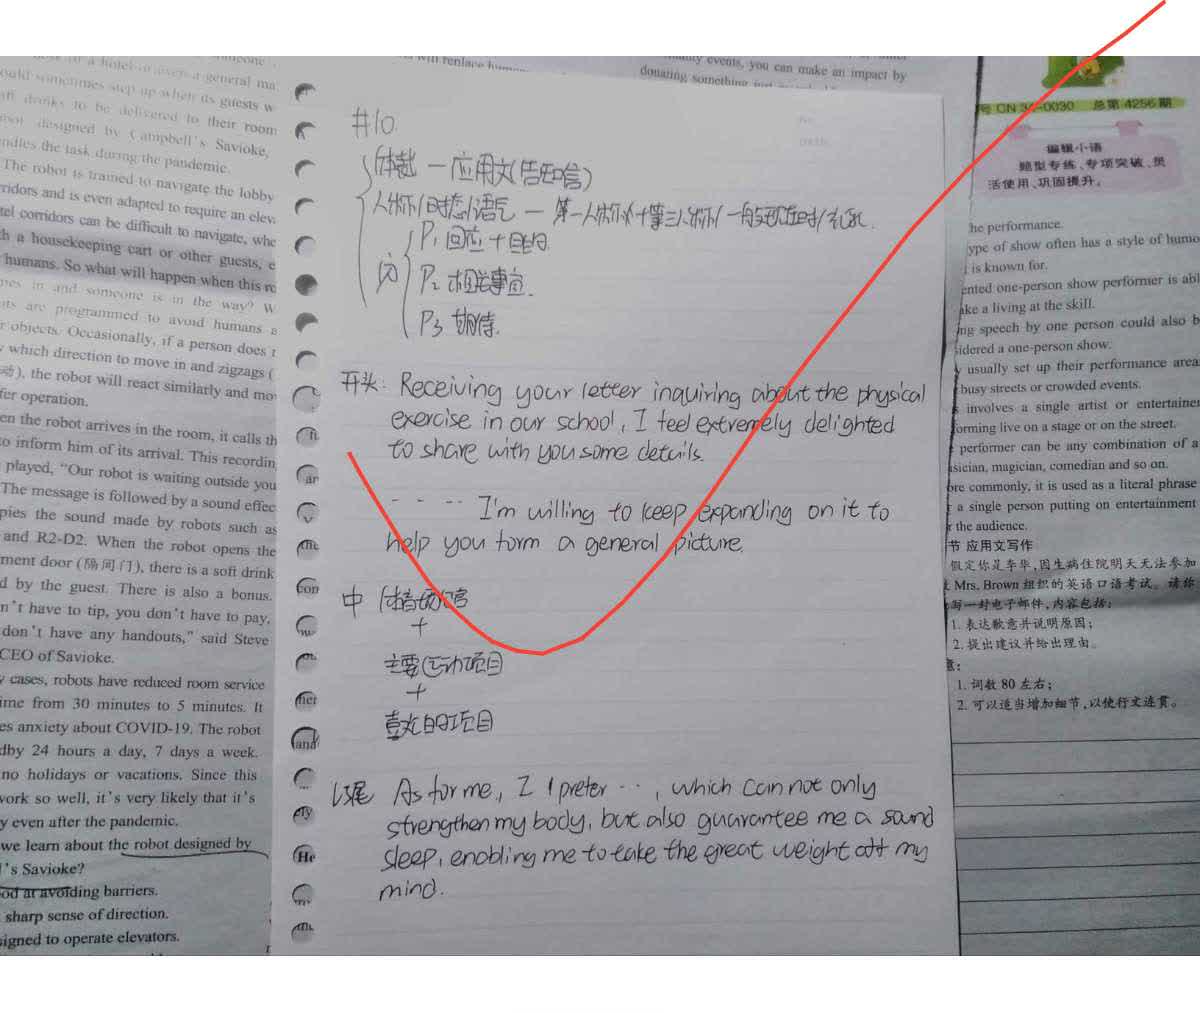 could sometimes step up when its guests w
to be delivered to their room
designed by Campbell's Savioke,
ndles the task during the pandemic.
The robot is trained to navigate the lobby
ridors and is even adapted to require an elev
tel corridors can be difficult to navigate, whe
h a housekeeping cart or other guests, e
humans. So what will happen when this ro
in and someone is in the way? W
are programmed to avoid humans a
r objects. Occasionally, if a person does
which direction to move in and zigzags (
动), the robot will react similarly and mo
fer operation.
en the robot arrives in the room, it calls th
to inform him of its arrival. This recordin
played, "Our robot is waiting outside you
The message is followed by a sound effec
pies the sound made by robots such as
and R2-D2. When the robot opens the
ment door (隔间门), there is a soft drink
d by the guest. There is also a bonus.
n't have to tip, you don't have to pay,
don't have any handouts," said Steve
CEO of Savioke.
y cases, robots have reduced room service
ime from 30 minutes to 5 minutes. It
es anxiety about COVID-19. The robot
dby 24 hours a day, 7 days a week.
no holidays or vacations. Since this
work so well, it's very likely that it's
y even after the pandemic.
we learn about the robot designed by
l's Savioke?
od at avoiding barriers.
sharp sense of direction.
signed to operate elevators.
#10
体裁 — 应用文(告知信)
人称/时态/语气 — 第一人称+第三人称/一般现在时/礼貌.
P1 回应+目的
P2 相关事宜.
P3 期待.
开头: Receiving your letter inquiring about the physical
exercise in our school, I feel extremely delighted
to share with you some details.
...... I'm willing to keep expanding on it to
help you form a general picture.
中
+
主要运动项目
+
喜欢的项目
结尾 As for me, I prefer ..., which can not only
strengthen my body, but also guarantee me a sound
sleep, enabling me to take the great weight off my
mind.
will replace
events, you can make an impact by
donating something
号 CN 34-0030 总第 4256 期
编辑小语
题型专练、专项突破、灵
活使用、巩固提升。
he performance.
ype of show often has a style of humo
is known for.
ented one-person show performer is abl
ake a living at the skill.
ng speech by one person could also b
sidered a one-person show.
usually set up their performance area
busy streets or crowded events.
involves a single artist or entertainer
forming live on a stage or on the street.
performer can be any combination of a
sician, magician, comedian and so on.
ore commonly, it is used as a literal phrase
a single person putting on entertainment
the audience.
节 应用文写作
假定你是李华,因生病住院明天无法参加
Mrs. Brown 组织的英语口语考试。请你
写一封电子邮件,内容包括:
1. 表达歉意并说明原因;
2. 提出建议并给出理由。
意:
1. 词数 80 左右;
2. 可以适当增加细节,以使行文连贯。